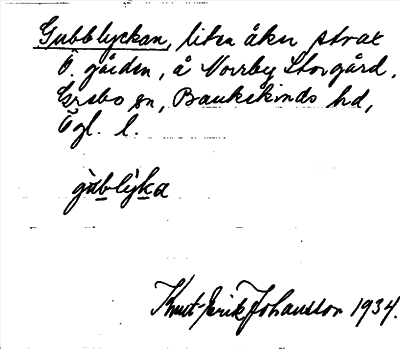 Gubblyckan, liten åker strax
Ö. gården, å Norrby Storgård,
Ersbo sn, Bankekinds hd,
Ögl. l.
gu̇blẏka
Knut-Erik Johansson 1934.